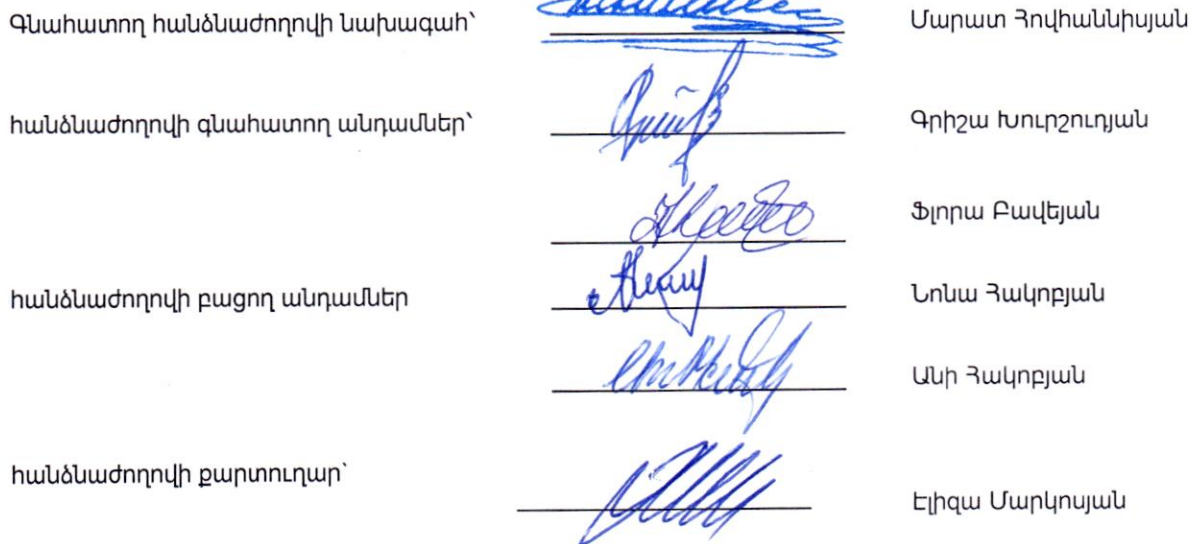 Գնահատող հանձնաժողովի նախագահ՝ Մարատ Հովհաննիսյան
հանձնաժողովի գնահատող անդամներ՝ Գրիշա Խուրշուդյան
Ֆլորա Բավեյան
հանձնաժողովի բացող անդամներ Նոնա Հակոբյան
Անի Հակոբյան
հանձնաժողովի քարտուղար՝ Էլիզա Մարկոսյան